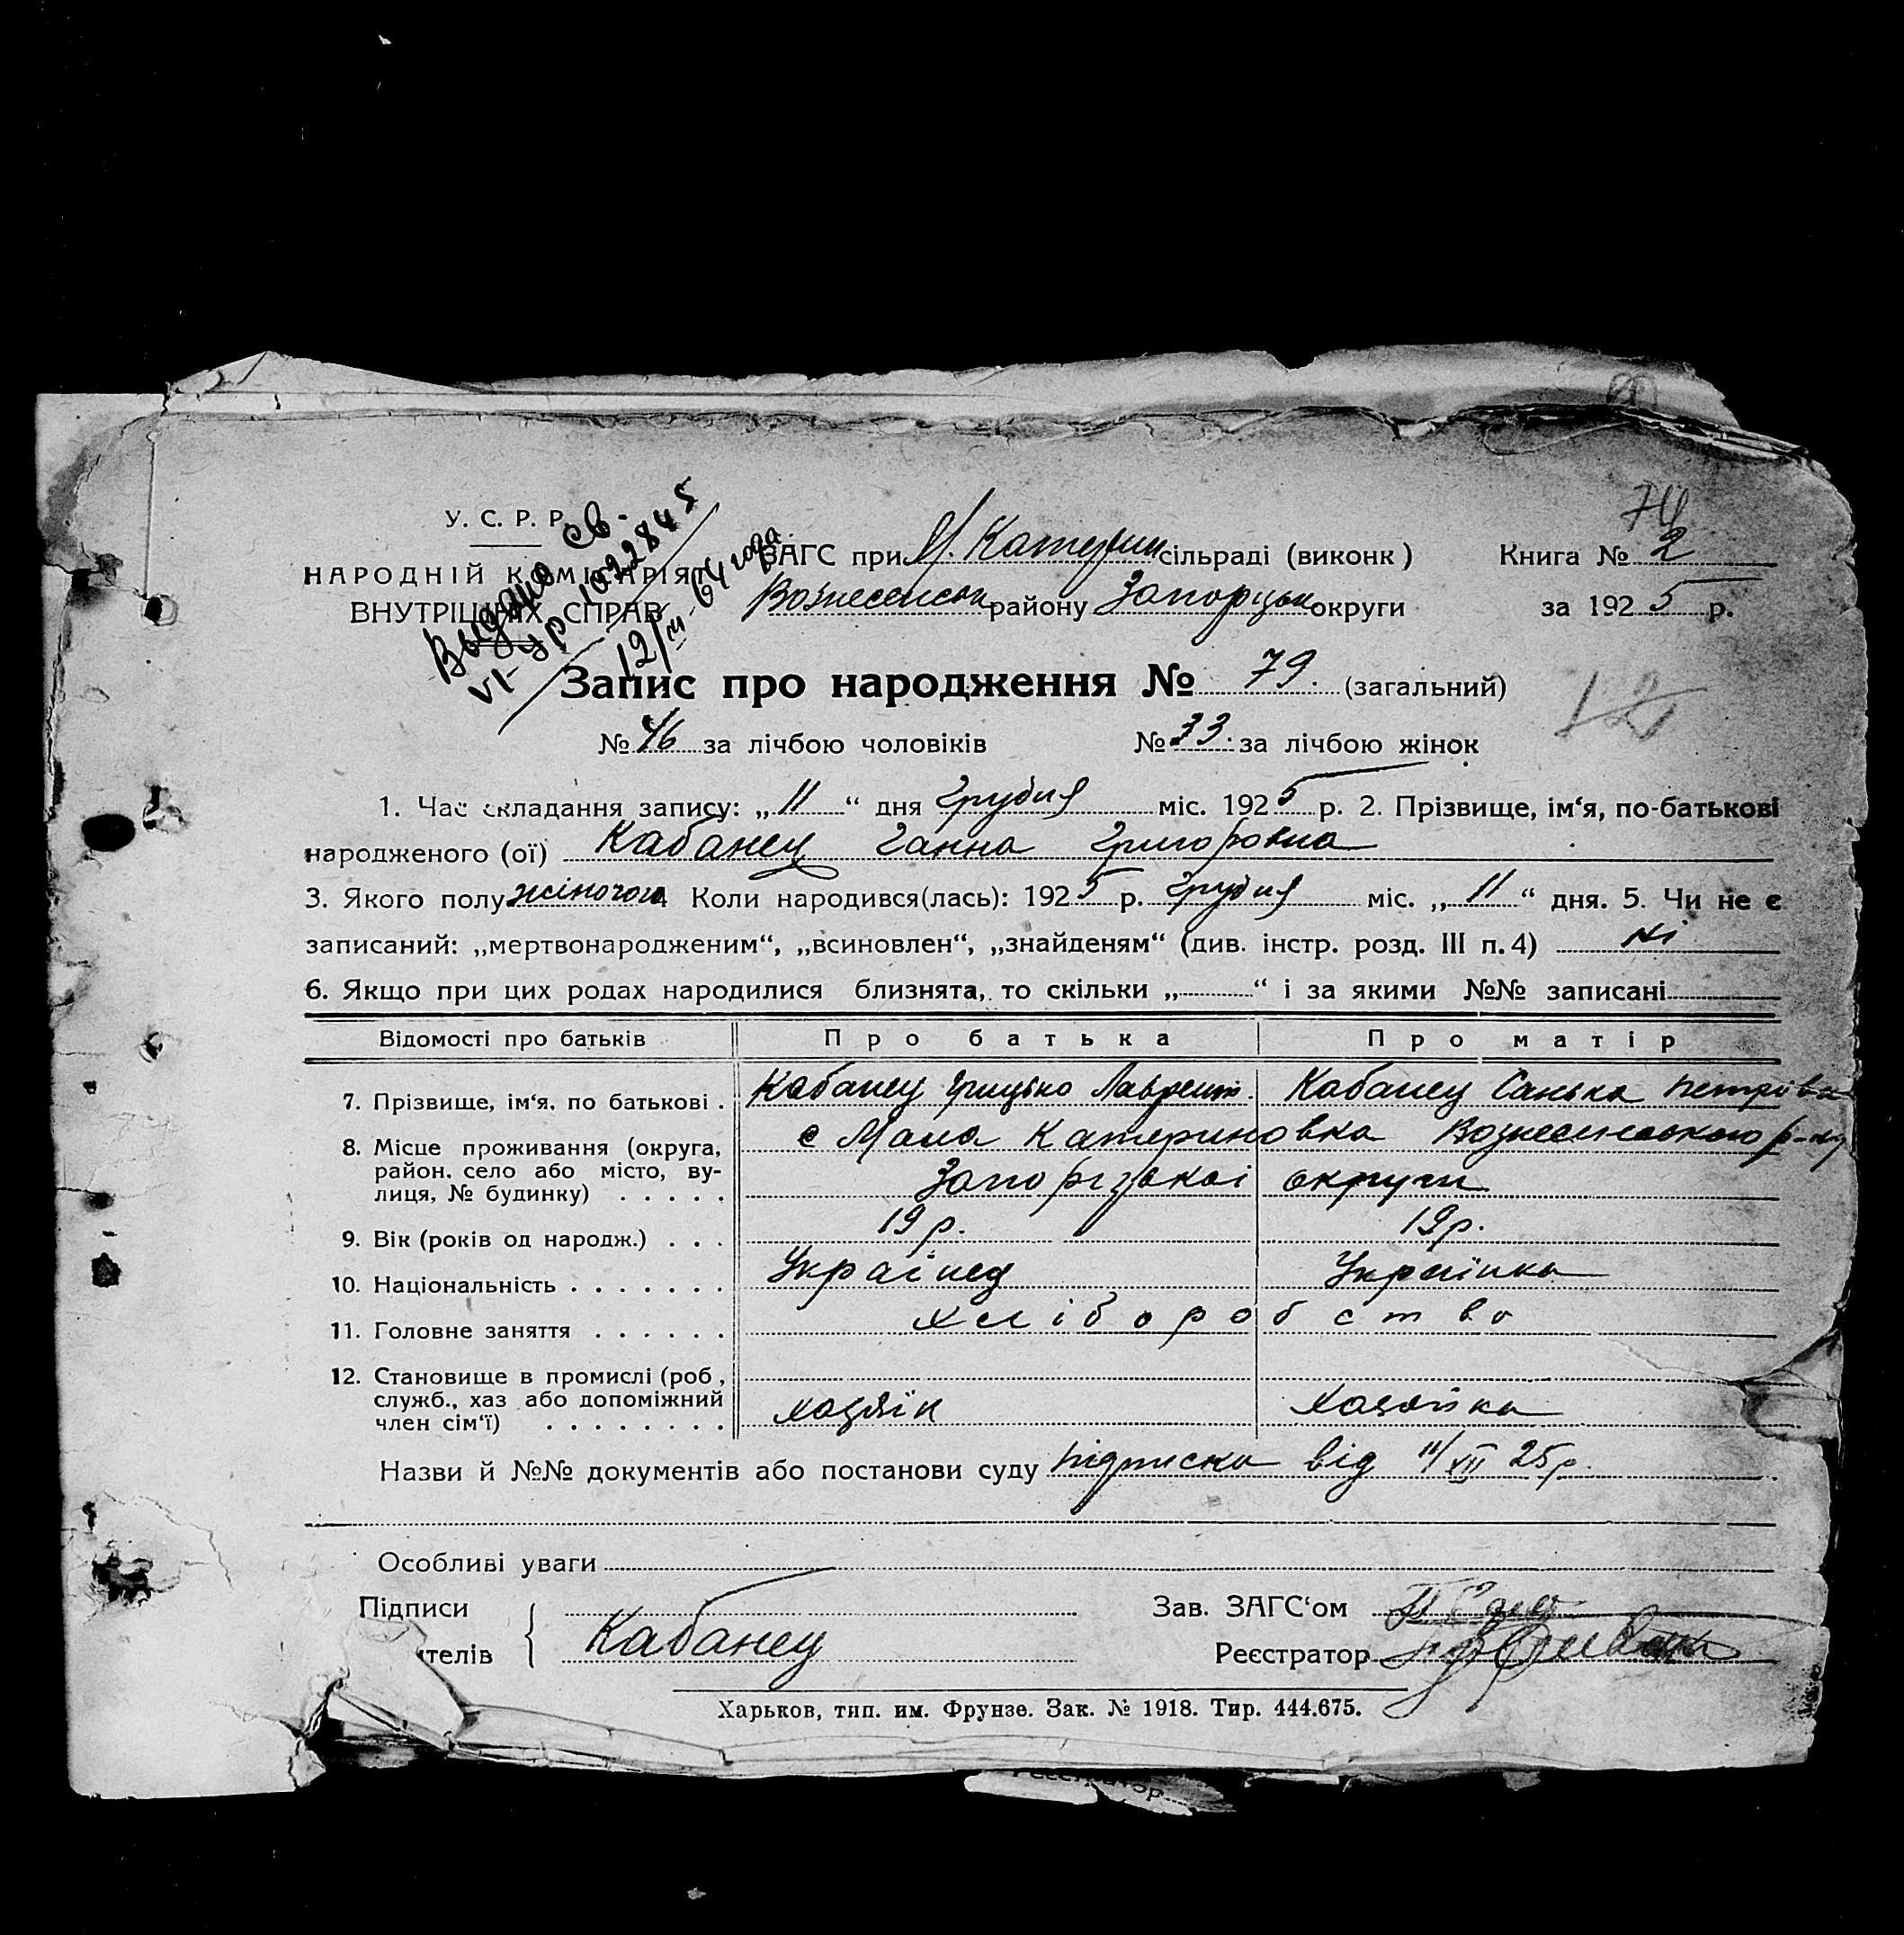 74
У. С. Р. Р.
НАРОДНІЙ КОМІСАРІЯТ
ВНУТРІШНІХ СПРАВ
Выдано св.
VI-УР 1022845
12/VI-64 года.
ЗАГС при М. Катерин сільраді (виконк) Книга № 2
Вознесенськ району Запорізьк округи за 1925 р.
Запис про народження № 79. (загальний)
№ 46 за лічбою чоловіків № 33. за лічбою жінок
1. Час складання запису: „11“ дня Грудня міс. 1925 р. 2. Прізвище, ім‘я, по-батькові
народженого (ої) Кабанец Ганна Григоровна
3. Якого полу жіночого 4 Коли народився(лась): 1925 р. Грудня міс. „11“ дня. 5. Чи не є
записаний: „мертвонародженим“, „всиновлен“, „знайденям“ (див. інстр. розд. III п. 4) Ні
6. Якщо при цих родах народилися близнята, то скільки „ “ і за якими №№ записані
Відомості про батьків Про батька Про матір
7. Прізвище, ім‘я, по батькові . Кабанец Грицько Лаврент. Кабанец Санька Петрівна
8. Місце проживання (округа, с Мала Катериновка Вознесенського р-ну
район, село або місто, ву-
лиця, № будинку) . . . . . Запорізької округи
9. Вік (років од народж.) . . . 19 р. 19 р.
10. Національність . . . . . . . Українец Українка
11. Головне заняття . . . . . . хліборобство
12. Становище в промислі (роб.,
служб., хаз або допоміжний
член сім‘ї) . . . . . . . . хазяїн хазяйка
Назви й №№ документів або постанови суду підписка від 11/XII 25 р.
Особливі уваги
Підписи Зав. ЗАГС‘ом
ителів Кабанец Реєстратор
Харьков, тип. им. Фрунзе. Зак. № 1918. Тир. 444.675.